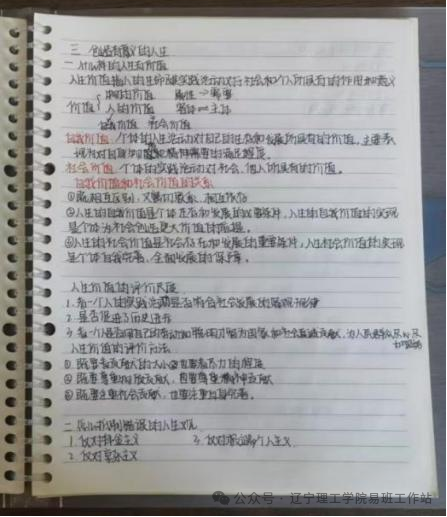 三 创造有意义的人生
一、什么样的人生有价值
人生价值指人的生命及其实践活动对于社会和个人所具有的作用和意义
物的价值 属性→需要
价值 人的价值 客体⇌主体
自我价值 社会价值
自我价值:个体的人生活动对自己的生存和发展所具有的价值,主要表
现为对自身物质和精神需要的满足程度。
社会价值:个体的实践活动对社会、他人所具有的价值。
自我价值和社会价值的关系
①既相互区别,又密切联系、相互依存
②人生的自我价值是个体生存和发展的必要条件,人生的自我价值的实现
是个体为社会创造更大价值的前提。
③人生的社会价值是社会存在和发展的重要条件,人生社会价值的实现
是个体自我完善,全面发展的保障。
人生价值的评价尺度
1.看一个人的实践活动是否符合社会发展的客观规律
2.是否促进了历史进步
3.看一个人是否用自己的劳动和聪明才智为国家和社会真诚贡献,为人民群众尽心尽
力服务
人生价值的评价方法
①既要看贡献的大小,也要看尽力的程度
②既要尊重物质贡献,也要尊重精神贡献
③既要注重社会贡献,也要注重自身完善。
二、反对错误的人生观
1.反对拜金主义 3.反对极端个人主义
2.反对享乐主义
公众号·辽宁理工学院易班工作站